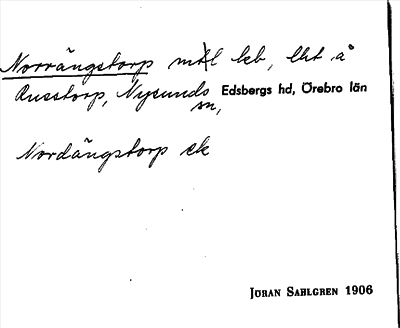 Norrängstorp mtl kb, lht å
Russtorp, Nysunds sn, Edsbergs hd, Örebro län
Nordängstorp ek
JÖRAN SAHLGREN 1906